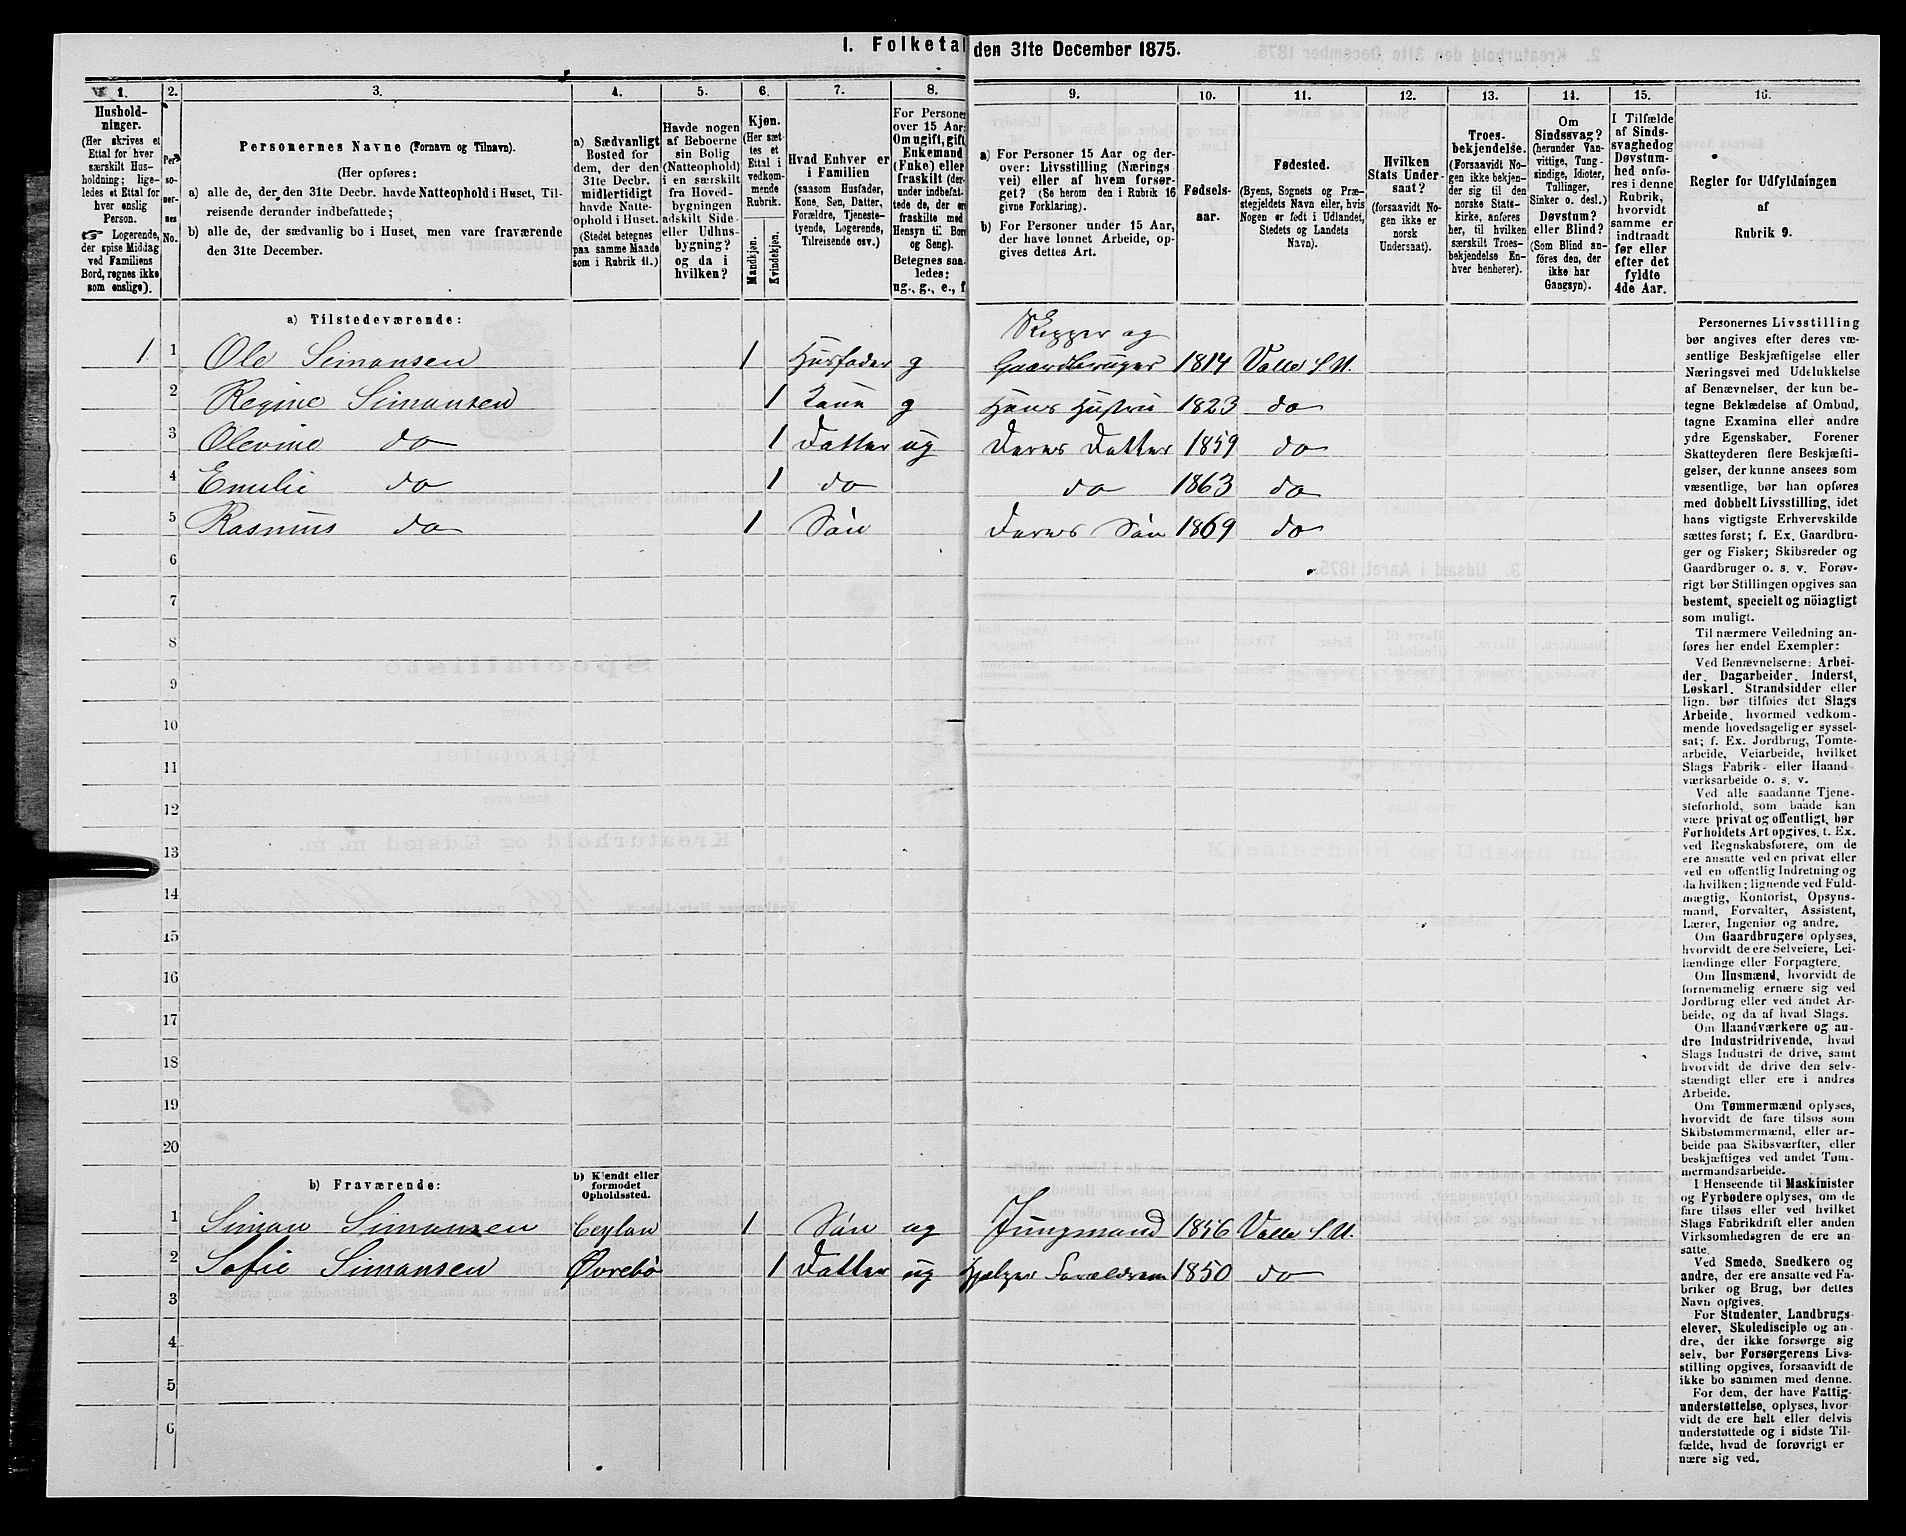 1. Folketal den 31te December 1875.
1. 2. 3. 4. 5. 6. 7. 8. 9. 10. 11. 12. 13. 14. 15. 16.
Hushold-
ninger.
(Her skrives et
Ettal for hver
særskilt Hus-
holdning; lige-
ledes et Ettal for
hver enslig
Person.
☞ Logerende,
der spise Middag
ved Familiens
Bord, regnes ikke
som enslige).
Per-
so-
ner-
nes
No.
Personernes Navne (Fornavn og Tilnavn).
(Her opføres:
a) alle de, der den 31te Decbr. havde Natteophold i Huset, Til-
reisende derunder indbefattede;
b) alle de, der sædvanlig bo i Huset, men vare fraværende
den 31te December.
a) Sædvanligt
Bosted for
dem, der den
31te Decbr.
midlertidigt
havde Natte-
ophold i Huset.
(Stedet betegnes
paa samme Maade
som i Rubrik 11.)
Havde nogen
af Beboerne
sin Bolig
(Natteophold)
i en særskilt
fra Hoved-
bygningen
adskilt Side-
eller Udhus-
bygning?
og da i
hvilken?
Kjøn.
(Her sæt-
tes et
Ettal i
vedkom-
mende
Rubrik.
Mandkjøn.
Kvindekjøn.
Hvad Enhver er
i Familien
(saasom Husfader,
Kone, Søn, Datter,
Forældre, Tjeneste-
tyende, Logerende,
Tilreisende osv.)
For Persone
over 15 Aar:
Om ugift, gift,
Enkemand
(Enke) eller
fraskilt (der-
under indbefat-
tede de, der er
fraskilte med
Hensyn til Bord
og Seng).
Betegnes saa-
ledes:
ug., g., e., f
a) For Personer 15 Aar og der-
over: Livsstilling (Nærings
vei) eller af hvem forsør-
get? (Se herom den i Rubrik 16
givne Forklaring).
b) For Personer under 15 Aar,
der have lønnet Arbeide, op-
gives dettes Art.
Fødsels-
aar.
Fødested.
(Byens, Sognets og Præ-
stegjeldets Navn eller, hvis
Nogen er født i Udlandet,
Stedets og Landets
Navn).
Hvilken
Stats Under-
saat?
(forsaavidt No-
gen ikke er
norsk
Undersaat).
Troes-
bekjendelse.
(Forsaavidt No-
gen ikke bekjen-
der sig til den
norske Stats-
kirke, anføres
her, til hvilken
særskilt Troes-
bekjendelse En-
hver henhører).
Om
Sindssvag?
(herunder Van-
vittige, Tung-
sindige, Idioter,
Tullinger,
Sinker o. desl.)
Døvstum?
eller Blind?
(Som Blind an-
føres den, der
ikke har
Gangsyn).
I Tilfælde
af Sinds-
svaghed og
Døvstum-
hed anfø-
res i denne
Rubrik,
hvorvidt
samme er
indtraadt
før eller
efter det
fyldte
4de Aar.
Regler for Udfyldningen
af
Rubrik 9.
a) Tilstedeværende:
Skipper og
1 1 Ole Simonsen 1 Husfader g Gaardbruger 1814 Valle S.U.
2 Regine Simonsen 1 Kone g Hans Hustru 1823 do
3 Olevine do 1 Datter ug Deres Datter 1859 do
4 Emilie do 1 do do 1863 do
5 Rasmus do 1 Søn Deres Søn 1869 do
6
7
8
9
10
11
12
13
14
15
16
17
18
19
20
b) Fraværende:
b) Kjendt eller
formodet
Opholdssted.
1 Simon Simonsen Ceylan 1 Søn ug Jungmand 1856 Valle S.U.
2 Sofie Simonsen Øvrebø 1 Datter ug Hjælper 1850 do
3
4
5
6
Personernes Livsstilling
bør angives efter deres væ-
sentlige Beskjæftigelse eller
Næringsvei med Udelukkelse
af Benævnelser, der kun be-
tegne Beklædelse af Ombud,
tagne Examina eller andre
ydre Egenskaber. Forener
Skatteyderen flere Beskjæfti-
gelser, der kunne ansees som
væsentlige, bør han opføres
med dobbelt Livsstilling, idet
hans vigtigste Erhvervskilde
sættes først; f. Ex. Gaardbru-
ger og Fisker; Skibsreder og
Gaardbruger o. s. v. Forøv-
rigt bør Stillingen opgives saa
bestemt, specielt og nöiagtigt
som muligt.
Til nærmere Veiledning an-
føres her endel Exempler:
Ved Benævnelserne: Arbei-
der, Dagarbeider, Inderst,
Løskarl, Strandsidder eller
lign. bør tilføies det Slags
Arbeide, hvormed vedkom-
mende hovedsagelig er syssel-
sat; f. Ex. Jordbrug, Tomte-
arbeide, Veiarbeide, hvilket
Slags Fabrik- eller Haand
værksarbeide o. s. v.
Ved alle saadanne Tjene-
steforhold, som baade kan
være privat og offentligt, bør
Forholdets Art opgives, t. Ex.
ved Regnskabsførere, om de
ere ansatte ved en privat eller
ved en offentlig Indretning og
da hvilken; lignende ved Fuld-
mægtig, Kontorist, Opsyns-
mand, Forvalter, Assistent,
Lærer, Ingeniør og andre.
Om Gaardbrugere oplyses,
hvorvidt de ere Selveiere, Lei-
lændinge eller Forpagtere.
Om Husmænd, hvorvidt de
fornemmelig ernære sig ved
Jordbrug eller ved andet Ar-
beide, og da af hvad Slags.
Om Haandværkere og an-
dre Industridrivende, hvad
Slags Industri de drive, samt
hvorvidt de drive den selv-
stændigt eller ere i andres
Arbeide.
Om Tømmermænd oplyses,
hvorvidt de fare tilsøs som
Skibstømmermænd, eller ar-
beide paa Skibsværfter, eller
beskjæftiges ved andet Tøm-
mermandsarbeide.
I Henseende til Maskinister
og Fyrbødere oplyses, om de
fare tilsøs eller ved hvilket
Slags Fabrikdrift eller anden
Virksomhedsgren de ere an-
satte.
Ved Smede, Snedkere og
andre, der ere ansatte ved Fa-
briker og Brug, bør dettes
Navn opgives.
For Studenter, Landbrugs-
elever, Skoledisciple og an-
dre, der ikke forsørge sig
selv, bør Forsørgerens Livs-
stilling opgives, forsaavidt de
ikke bo sammen med denne.
For dem, der have Fattig-
understøttelse, oplyses, hvor-
vidt de ere helt eller delvis
understøttede og i sidste Til-
fælde, hvad de forøvrigt er
nære sig ved.